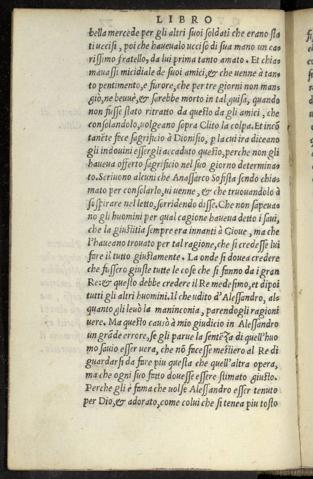 LIBRO
bella mercede per gli altri suoi soldati che erano sta
ti uccisi, poi che haueualo ucciso di sua mano un ca
rissimo fratello, da lui prima tanto amato. Et chia
mauassi micidiale de suoi amici, & che uenne à tan
to pentimento, e furore, che per tre giorni non man
giò, ne beuuè, & sarebbe morto in tal guisa, quando
non fusse stato ritratto da questo da gli amici, che
consolandolo, uolgeano sopra Clito la colpa. Et incō
tanēte fece sagrificio à Dionisio, p la cui ira diceano
gli indouini essergli accaduto questo, perche non gli
haueua offerto sagrificio nel suo giorno determina
to. Scriuono alcuni che Anassarco Sofista sendo chia
mato per consolarlo, ui uenne, & che truouandolo à
sospirare nel letto, sorridendo disse. Che non sapeua
no gli huomini per qual cagione haueua detto i saui,
che la giustitia sempre era innanti à Gioue, ma che
l'haueano trouato per tal ragione, che si credesse lui
fare il tutto giustamente. La onde si douea credere
che fussero giuste tutte le cose che si fanno da i gran
Re: & questo debbe credere il Re medesimo, et dipoi
tutti gli altri huomini. Il che udito d'Alessandro, al
quanto gli leuò la maninconia, parendogli ragioni
uere. Ma questo causò à mio giudicio in Alessandro
un grāde errore, se gli parue la sentēza di quell'huo
mo sauio esser uera, che nō fecesse mestiero al Re di
guardarsi da fare piu questa che quell'altra opera,
ma che ogni suo fatto douesse essere stimato giusto.
Perche gli è fama che uolse Alessandro esser tenuto
per Dio, & adorato, come colui che si tenea piu tosto